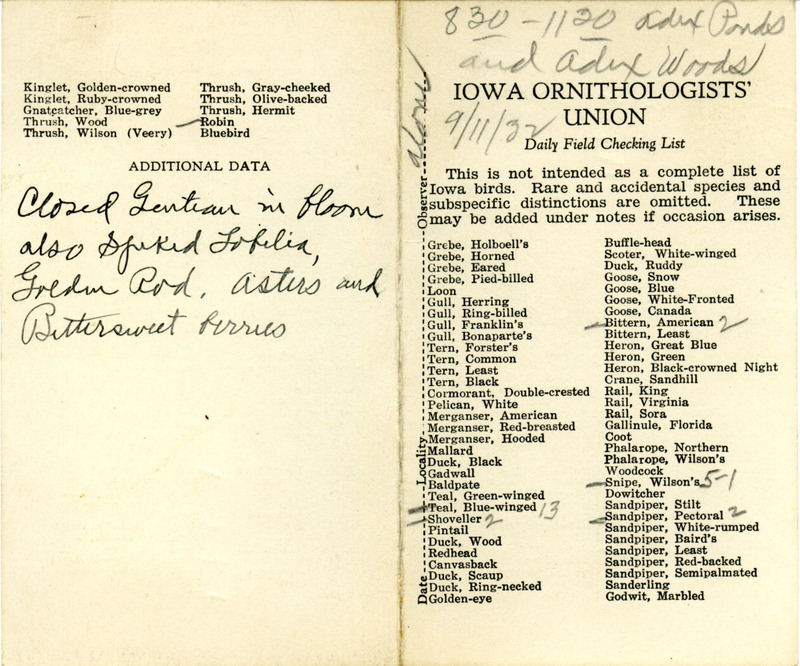 Kinglet, Golden-crowned
Kinglet, Ruby-crowned
Gnatcatcher, Blue-grey
Thrush, Wood
Thrush, Wilson (Veery)
Thrush, Gray-cheeked
Thrush, Olive-backed
Thrush, Hermit
Robin
Bluebird
ADDITIONAL DATA
Closed Gentian in bloom
also Spiked Lobelia,
Golden Rod, Asters and
Bittersweet berries
8 30 - 11 30 Adex Ponds
and Adex Woods
IOWA ORNITHOLOGISTS'
UNION
9/11/32
Daily Field Checking List
Date Locality Observer alone
This is not intended as a complete list of
Iowa birds. Rare and accidental species and
subspecific distinctions are omitted. These
may be added under notes if occasion arises.
Grebe, Holboell's
Grebe, Horned
Grebe, Eared
Grebe, Pied-billed
Loon
Gull, Herring
Gull, Ring-billed
Gull, Franklin's
Gull, Bonaparte's
Tern, Forster's
Tern, Common
Tern, Least
Tern, Black
Cormorant, Double-crested
Pelican, White
Merganser, American
Merganser, Red-breasted
Merganser, Hooded
Mallard
Duck, Black
Gadwall
Baldpate
Teal, Green-winged
Teal, Blue-winged 13
Shoveller 2
Pintail
Duck, Wood
Redhead
Canvasback
Duck, Scaup
Duck, Ring-necked
Golden-eye
Buffle-head
Scoter, White-winged
Duck, Ruddy
Goose, Snow
Goose, Blue
Goose, White-Fronted
Goose, Canada
Bittern, American 2
Bittern, Least
Heron, Great Blue
Heron, Green
Heron, Black-crowned Night
Crane, Sandhill
Rail, King
Rail, Virginia
Rail, Sora
Gallinule, Florida
Coot
Phalarope, Northern
Phalarope, Wilson's
Woodcock
Snipe, Wilson's 5-1
Dowitcher
Sandpiper, Stilt
Sandpiper, Pectoral 2
Sandpiper, White-rumped
Sandpiper, Baird's
Sandpiper, Least
Sandpiper, Red-backed
Sandpiper, Semipalmated
Sanderling
Godwit, Marbled